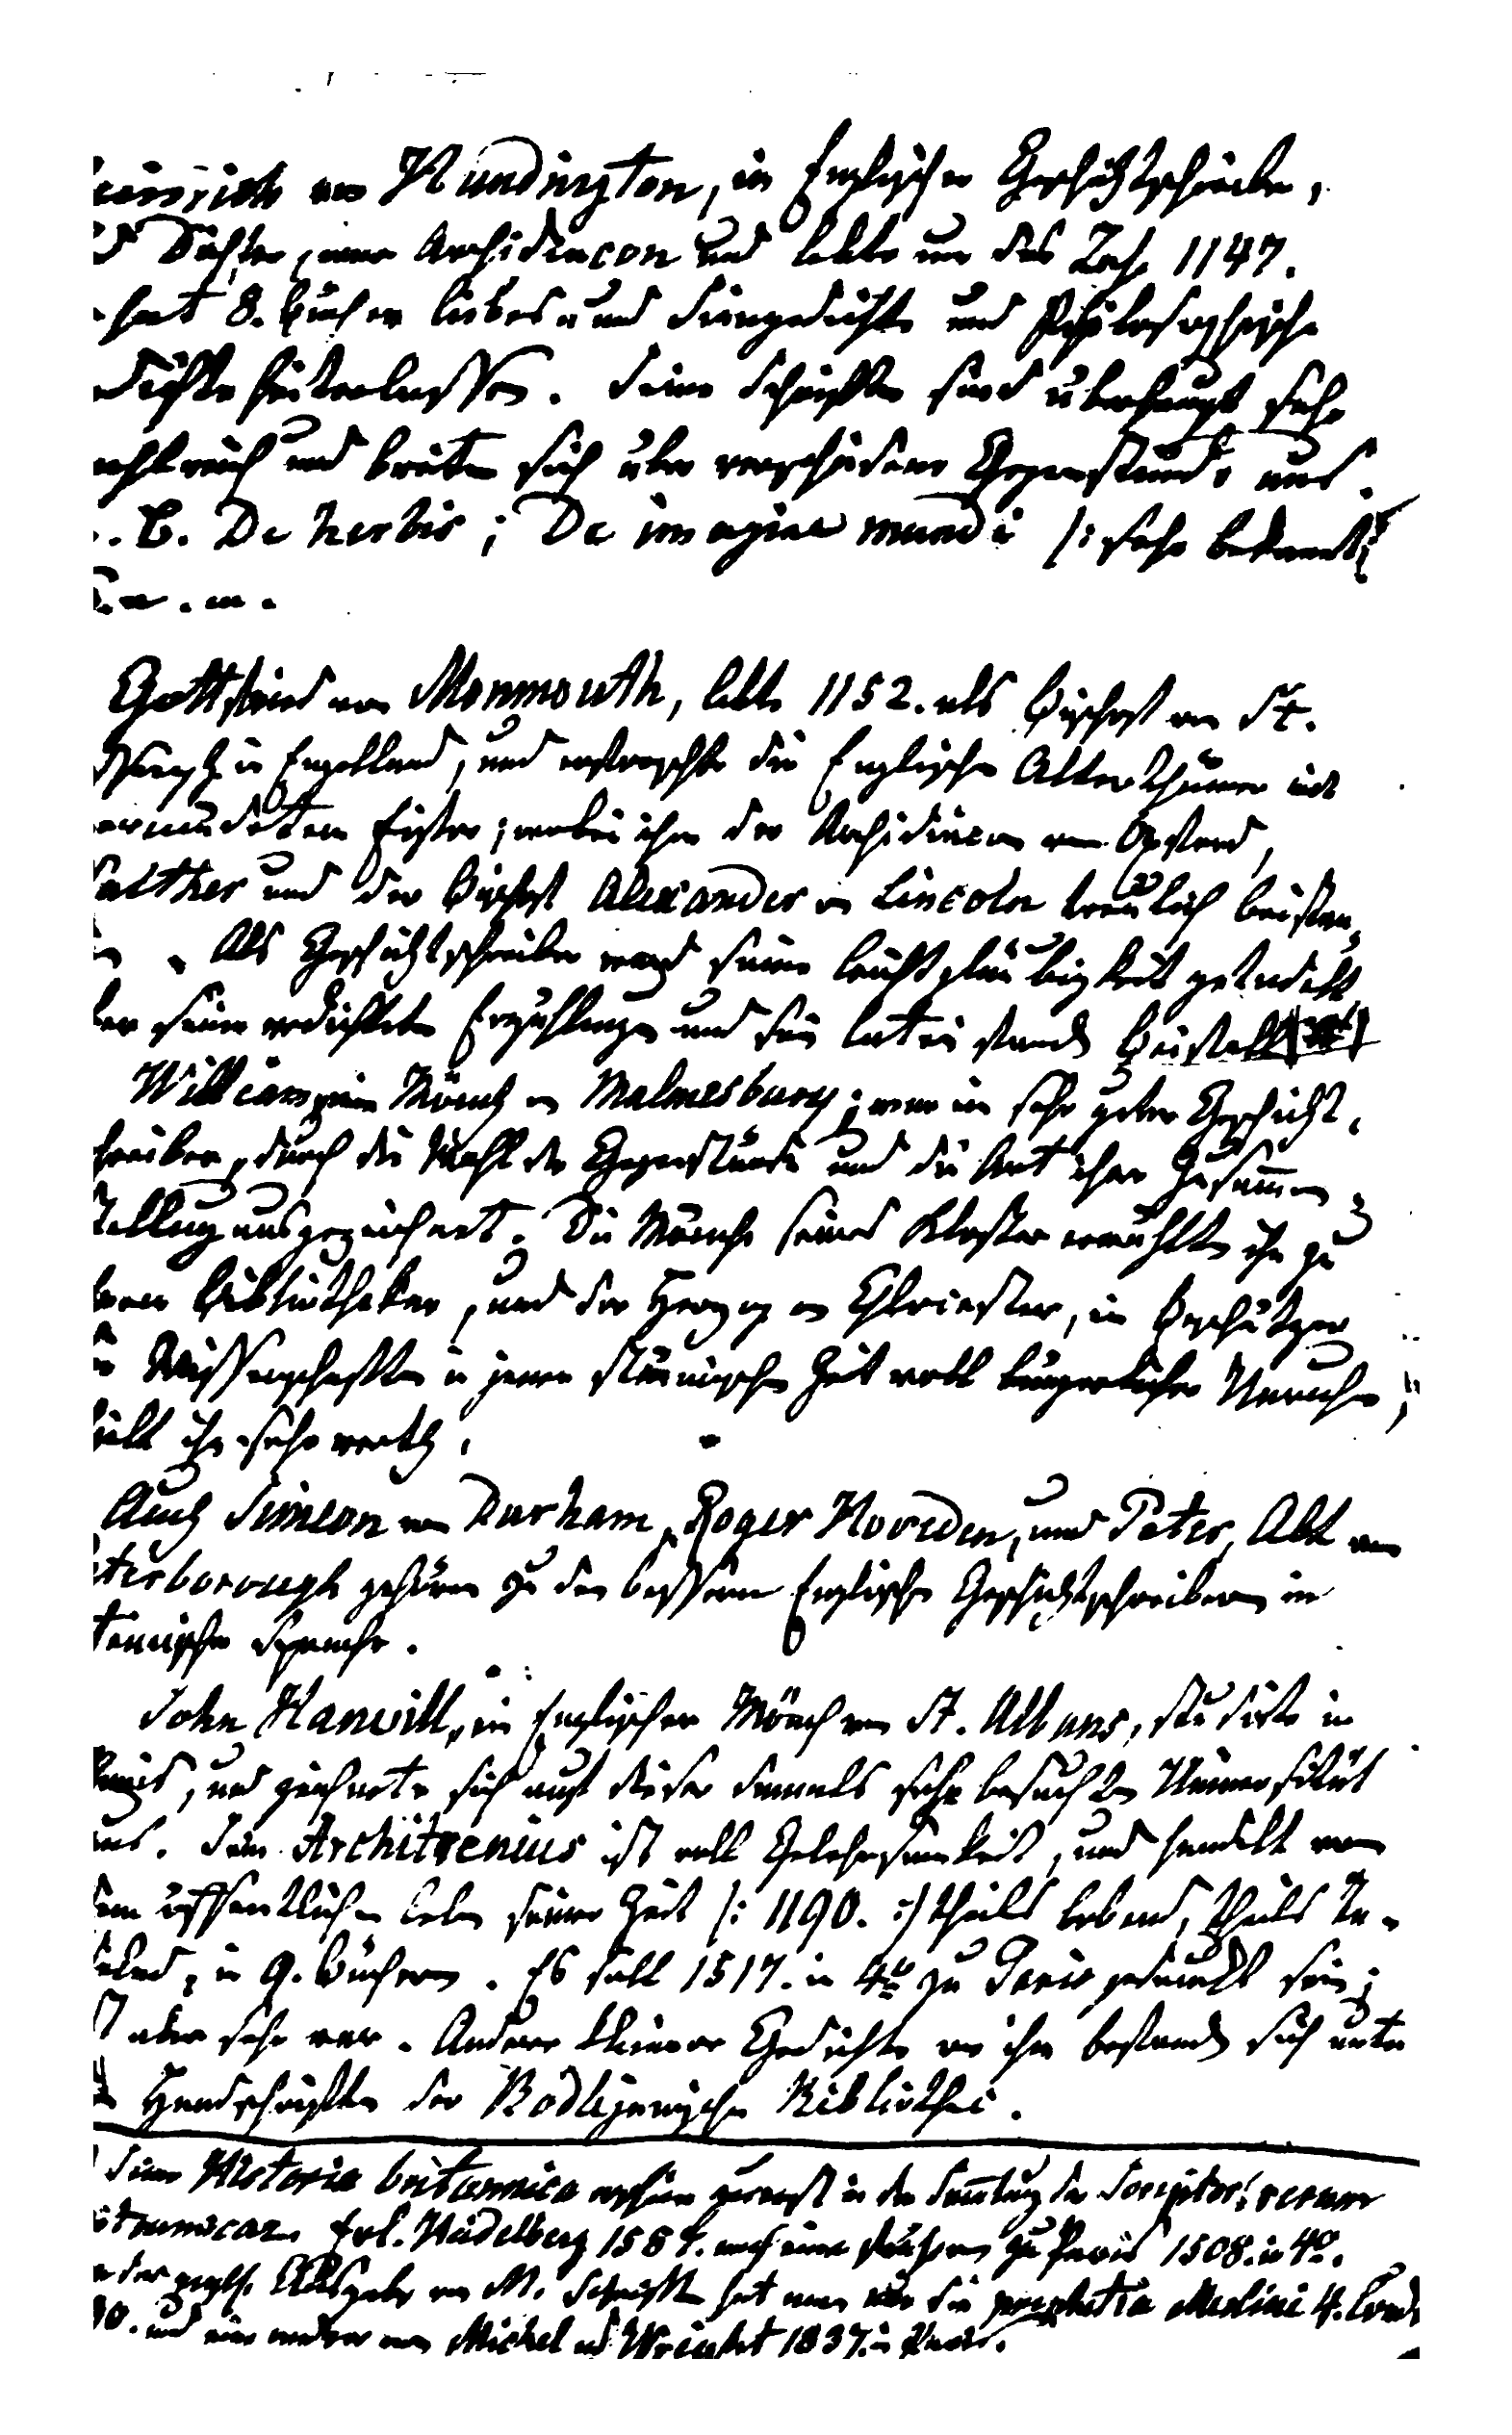 Heinrich von Hundington, ein Englischer Geschichtschreiber,
d Dichter, war Archidiacon und lebte um das Jahr 1147.
hat 8. Bücher Liebes- und Sinngedichte und Philosophische
dichte hinterlassen. Seine Schriften sind überhaupt sehr
ahlreich und breiten sich über verschiedene Gegenstände aus.
. B. De herbis; De imagine mundi /: sehr bekannt :/
u. a. m.
Gottfried von Monmouth, lebte 1152. als Bischof von St.
Asaph in Engelland, und erforschte die Englischen Alterthümer mit
ermüdetem Eifer; wobei ihm der Archidiacon von Oxford,
alther und der Bischof Alexander v. Lincoln treulich beistan-
n. Als Geschichtschreiber ward seine Leichtgläubigkeit getadelt
ber seine erdichteten Erzählungen und sein Latein fanden Beifall
William, ein Mönch v. Malmesbury; war ein sehr guter Geschicht-
hreiber, durch die Wahl der Gegenstände und die Art ihrer Zusammen-
tellung ausgezeichnet. Die Mönche seines Klosters erwählten ihn zu
hrem Bibliothekar, und der Herzog v. Glocester, ein Beschützer
r Wissenschaften in jener stürmischen Zeit voll bürgerlicher Unruhen,
hielt ihn sehr werth.
Auch Simeon von Durham, Roger Hoveden, und Peter, Abt von
terborough gehören zu den bessern Englischen Geschichtschreibern in
teinischer Sprache.
John Hanvill, ein Englischer Mönch von St. Albans, studirte in
Paris, und zeichnete sich auf dieser damals sehr besuchten Universität
aus. Sein Architrenius ist voll Gelehrsamkeit, und handelt von
dem öffentlichen Leben seiner Zeit /: 1190. :/ theils lobend, theils ta-
delnd, in 9. Büchern. Es soll 1517. in 4to zu Paris gedruckt sein;
st aber sehr rar. Andere kleinere Gedichte von ihm befanden sich unter
n Handschriften der Bodlejanischen Bibliothec.
Seine Historia britannica erschien zuerst in der Samtung der Scriptor: rerum
itannicar. fol. Heidelberg 1587. nach einer frühern zu Paris 1508. in 4to.
der engls. Ausgabe von M. Schriften hat man die prophetia Merlini 4. Lond.
und eine andere von Michel und Wright 1837. in Paris.